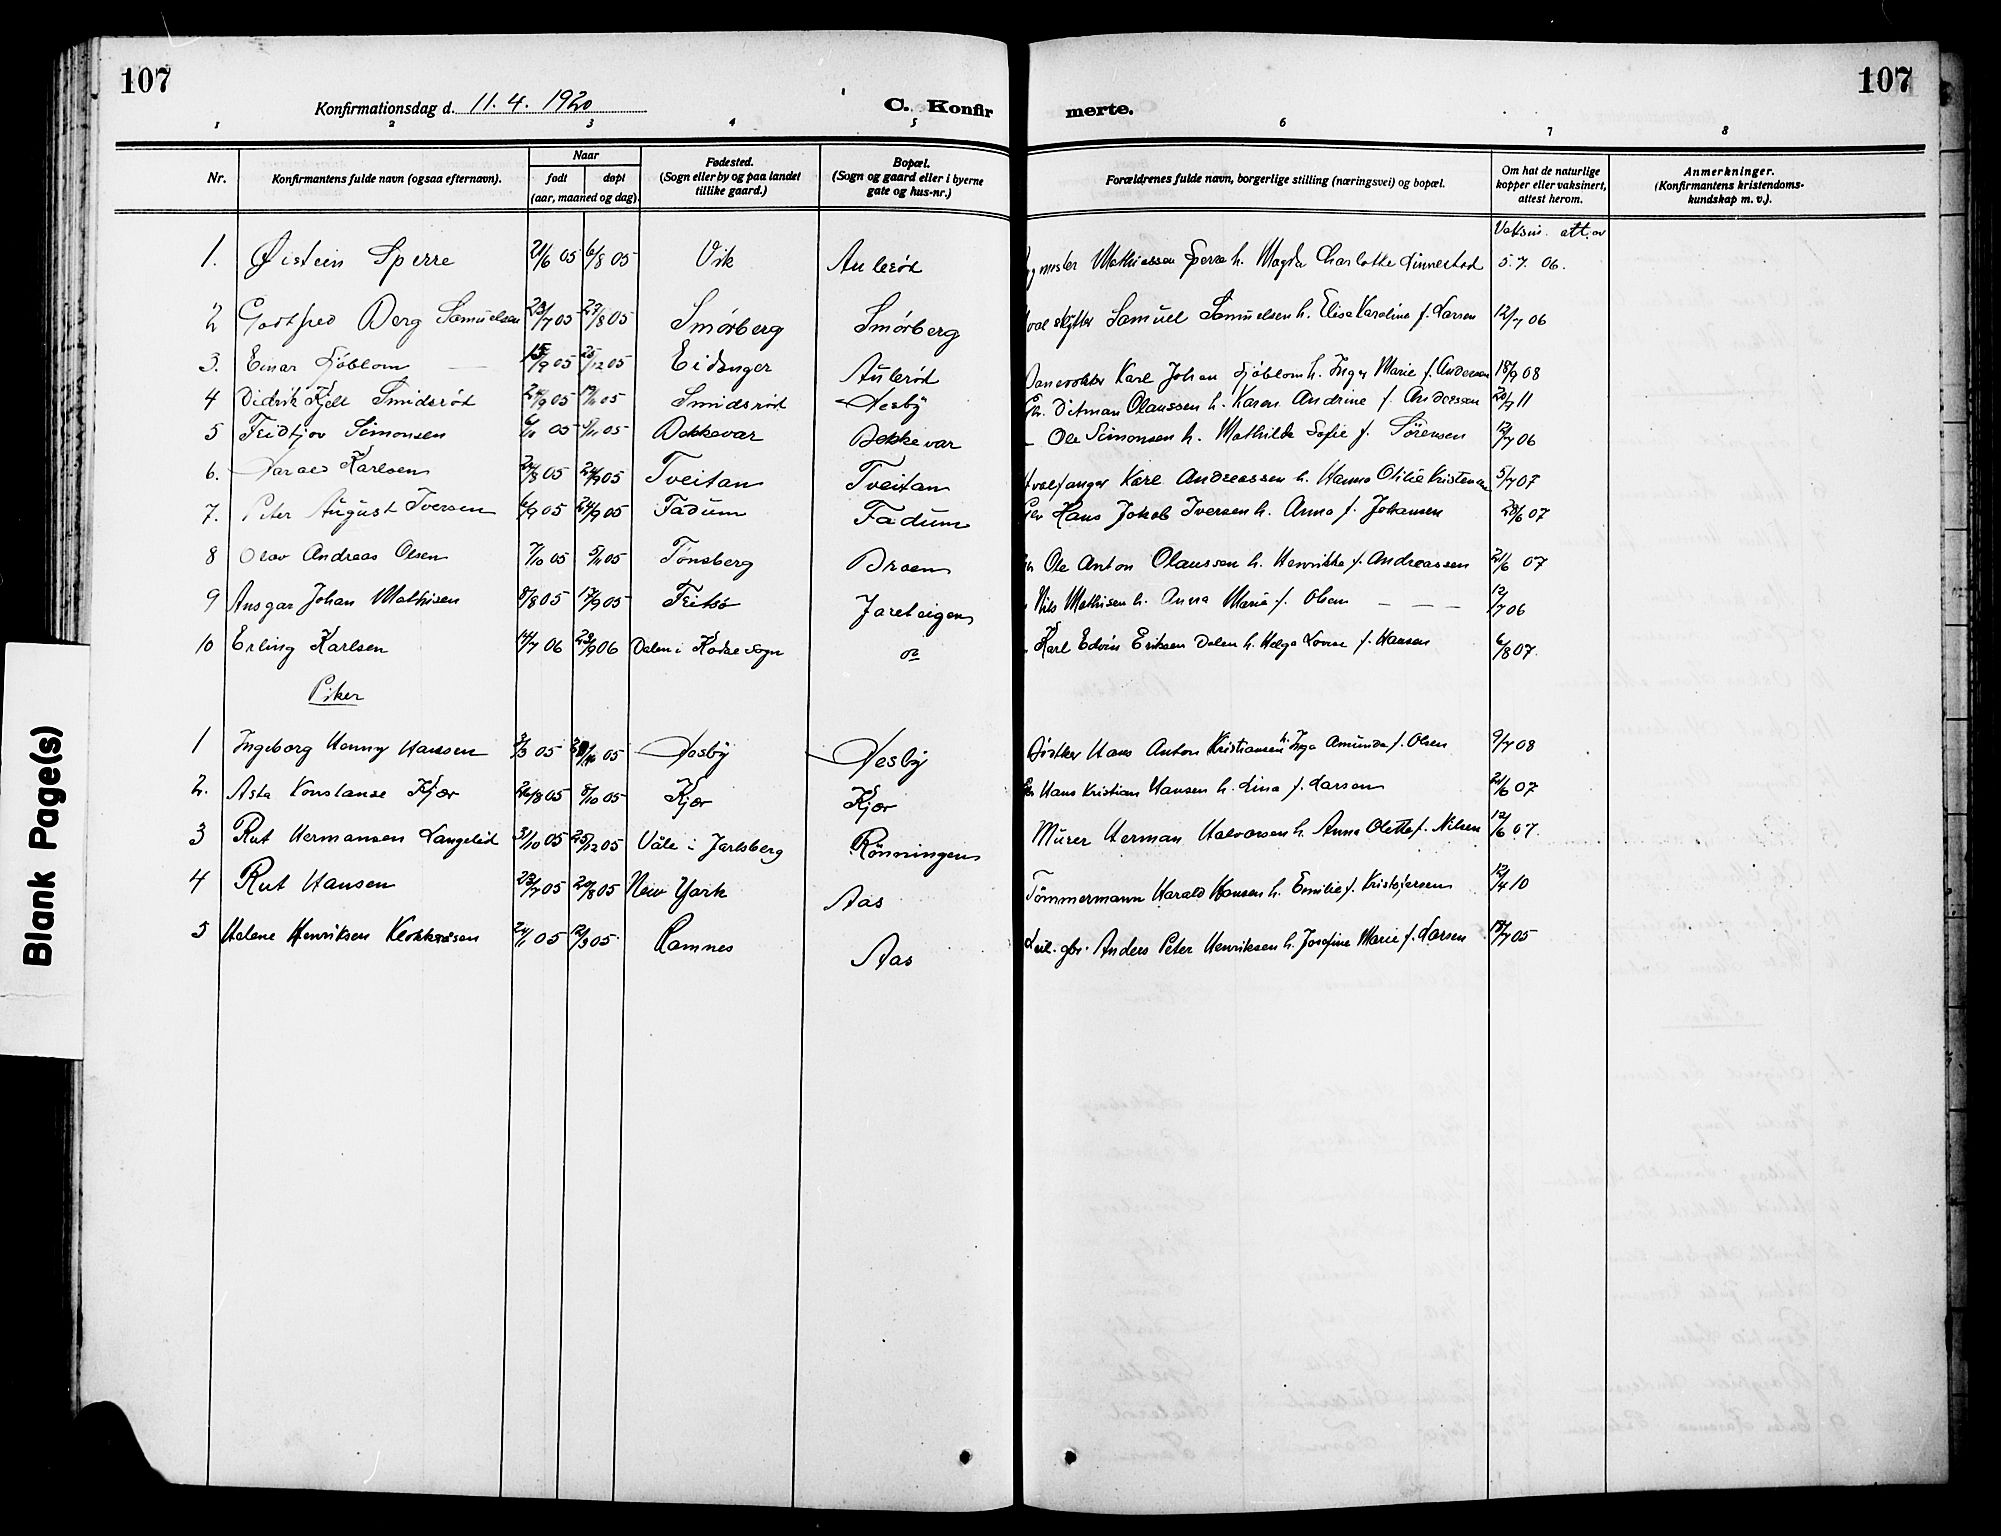 107
107
Konfirmationsdag d. 11. 4. 1920
C. Konfirmerte.
1 2 3 4 5 6 7 8
Nr. Konfirmantens fulde navn (ogsaa efternavn). Naar født døpt (aar, maaned og dag). Fødested. (Sogn eller by og paa landet tillike gaard.) Bopæl. (Sogn og gaard eller i byerne gate og hus-nr.) Forældrenes fulde navn, borgerlige stilling (næringsvei) og bopæl. Om hat de naturlige kopper eller vaksinert, attest herom. Anmerkninger. (Konfirmantens kristendomskundskap m. v.).
Vaksin. att. av
1. Øistein Sperre 21/6 05 6/8 05 Vik Aulerød Mathiassen Sperre h. Magda Charlotte Linnestad 5.7.06.
2 Gotfred Berg Samuelsen 23/7 05 27/8 05 Smørberg Smørberg Samuel Samuelsen h. Elise Karoline f. Larsen 12/7 06
3. Einar Sjöblom 15/9 05 25/12 05 Eidanger Aulerød Karl Johan Sjöblom h. Inger Marie f. Andersen 18/9 08
4 Didrik Kjell Smidsrød 24/9 05 Smidsrød Sesby Ditman Olaussen h. Karen Andrine f. Andersen 20/7 11
5 Fridtjov Simonsen 6/10 05 5/11 05 Bekkevar Bekkevar Ole Simonsen h. Mathilde Sofie f. Sørensen 12/7 06
6. Karlsen 24/8 05 24/9 05 Tveitan Tveitan Hvalfanger Karl Andreassen h. Hanna Otilie Kristensen 5/7 07
7. Peter August Iversen 6/9 05 24/9 05 Fadum Fadum Hans Jakob Iversen h. Anna f. Johansen 28/6 07
8 Olav Andreas Olsen 7/10 05 5/11 05 Tønsberg Braen Ole Anton Olaussen h. Henrikke f. Andreassen 21/6 07
9 Ansgar Johan Mathisen 8/8 05 17/9 05 Jareteigen Nils Mathisen h. Anna Marie f. Olsen 12/7 06
10 Erling Karlsen 14/7 06 23/9 06 Dalen i Kodal sogn Karl Edvin Eriksen Dalen h. Helga Lovise f. Hansen 6/8 07.
Piker
1 Ingeborg Henny Hansen 3/3 05 05 Sesby Sesby Hans Anton Kristiansen h. Inga Amunda f. Olsen 9/7 08
2. Asta Konstanse Kjær 26/8 05 8/10 05 Kjær Kjær Hans Kristian Hansen h. Lina f. Larsen 21/6 07
3 Rut Hermansen Langelid 3/10 05 25/12 05 Våle i Jarlsberg Rønningen Murer Herman Halvorsen h. Anna Olette f. Nilsen 12/6 07.
4 Rut Hansen 23/7 05 20/8 05 New York Aas Tømmermann Harald Hansen h. Emilie f. Kristofersen 12/4 10
5 Helene Henriksen Klokkeråsen 24/1 05 12/3 05 Ramnes Aas Leil. gbr. Anders Peter Henriksen h. Josefine Marie f. Larsen 17/7 05
Blank Page(s)